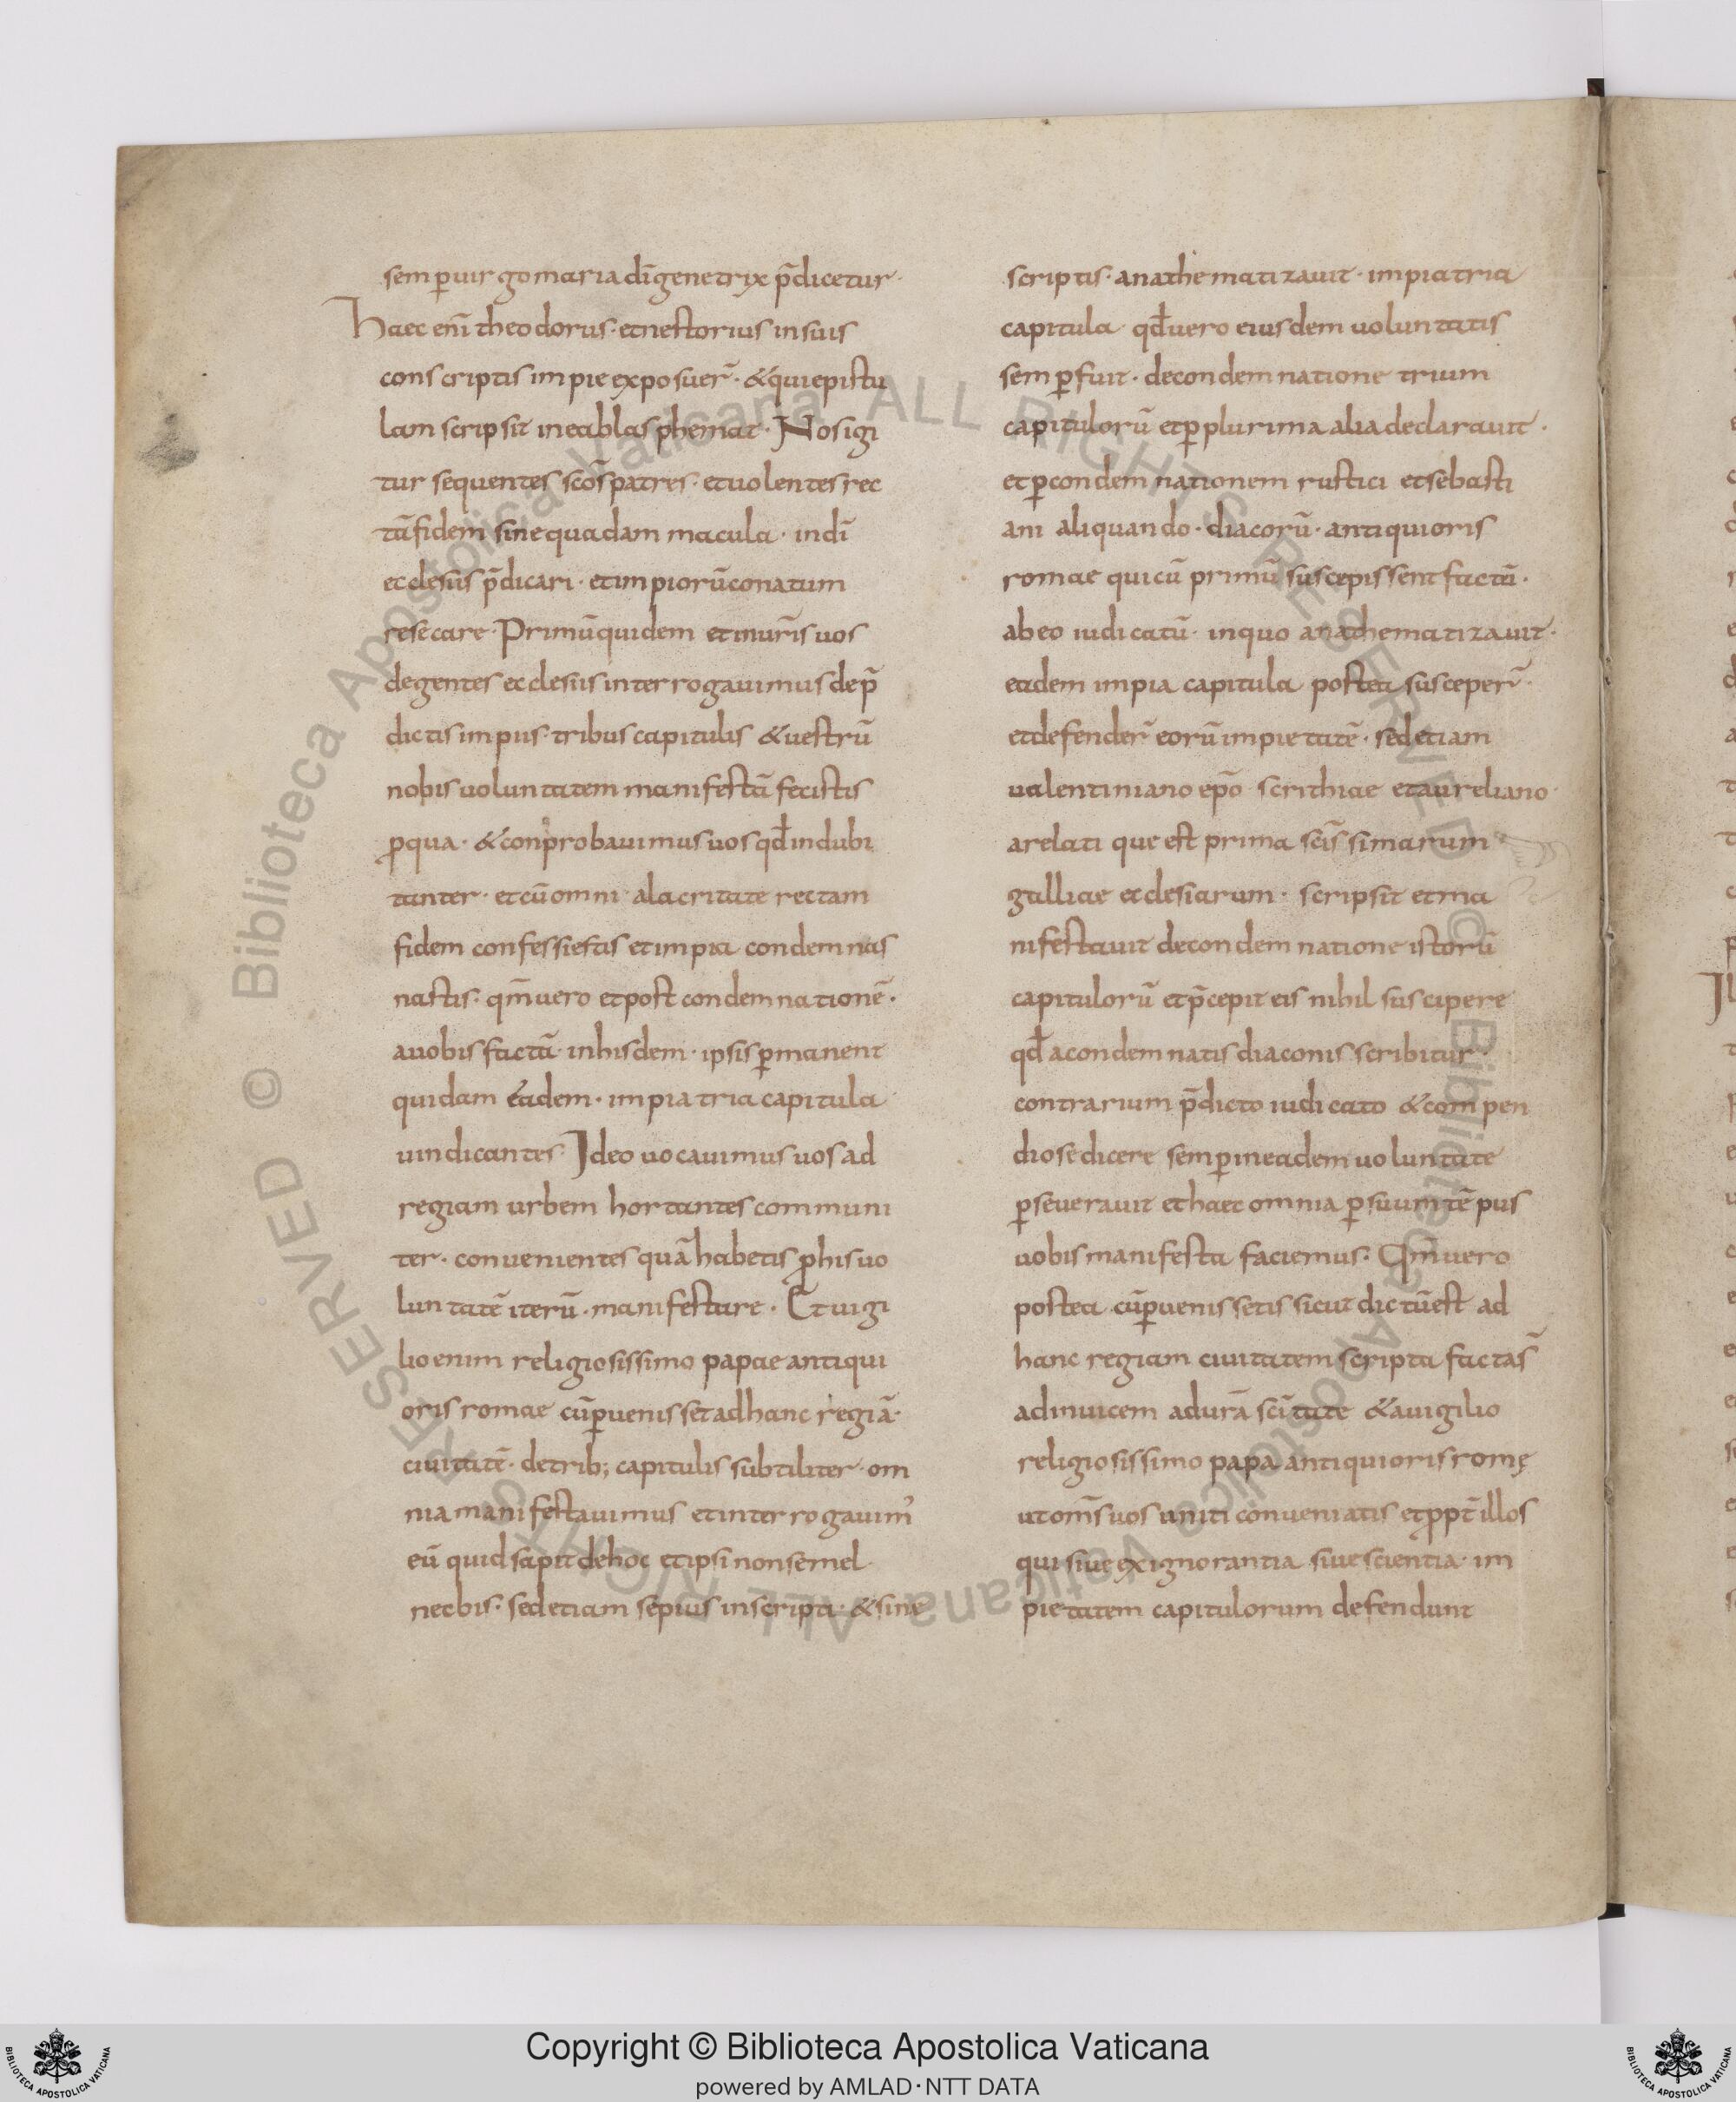 semp̱uirgo maria dī genetrix p̄dicetur·
Haec enī theodorus· et nestorius in suis
conscriptis impie exposuer̄· & qui epistu
lam scripsit in ea blasphemat· Nos igi
tur sequentes scōs patres· et uolentes rec
tā fidem sine quadam macula· in dī
ecclesiis p̄dicari· et impiorū conatum
resecare· Primū quidem et in ur̄is uos
degentes ecclesiis interrogauimus de p̄
dictis impiis· tribus capitulis & uestrū
nobis uoluntatem manifestā fecistis
ꝑ qua· & conprobauimus uos qđ indubi
tanter· et cū omni alacritate rectam
fidem confessi estis et impia condemnas
nastis· qm̄ uero et post condemnationē·
a uobis factā· in hisdem· ipsis ꝑmanent
quidam eadem· impia tria capitula
uindicantes· Ideo uocauimus uos ad
regiam urbem hortantes communi
ter· conuenientes quā habetis ꝓ his uo
luntatē iterū· manifestare· Et uigi
lio enim religiosissimo papae antiqui
oris romae cū ꝑuenisset ad hanc regiā·
ciuitatē· de trib; capitulis subtiliter· om
nia manifestauimus et interrogauim'
eū quid sapit de hoc et ipsi non semel·
nec bis· sed etiam sepius in scripta· & sine
scriptis· anathematizauit· impia tria
capitula qđ uero eiusdem uoluntatis
semꝑ fuit· de condemnatione trium
capitulorū et ꝑ plurima alia declarauit·
et ꝑ condemnationem rustici et sebasti
ani aliquando· diacorū· antiquioris
romae qui cū primū suscepissent factū·
ab eo iudicatū· in quo anathematizauit·
eadem impia capitula postea susceper̄·
et defender̄ eorū impietatē· sed etiam
ualentiniano ep̄o scrithiae et aureliano·
arelati que est prima scīssimarum
galliae ecclesiarum· scripsit et ma
nifestauit de condemnatione istorū
capitulorū et p̄cepit eis nihil suscipere
qđ a condemnatis diaconis scribitur·
contrarium p̄dicto iudicato & compen
diose dicere semꝑ in eadem uoluntate
ꝑseuerauit et haec omnia ꝑ suum tēpus
uobis manifesta faciemus· Qm̄ uero
postea cū ꝑuenissetis sicut dictū est ad
hanc regiam ciuitatem scripta factas̄
adinuicem a durā scītate & a uigilio
religiosissimo papa antiquioris romę
ut om̄s uos uniti conueniatis et ꝓpt̄ illos
qui siue ex ignorantia siue scientia· im
pietatem capitulorum defendunt
Copyright © Biblioteca Apostolica Vaticana
powered by AMLAD·NTT DATA